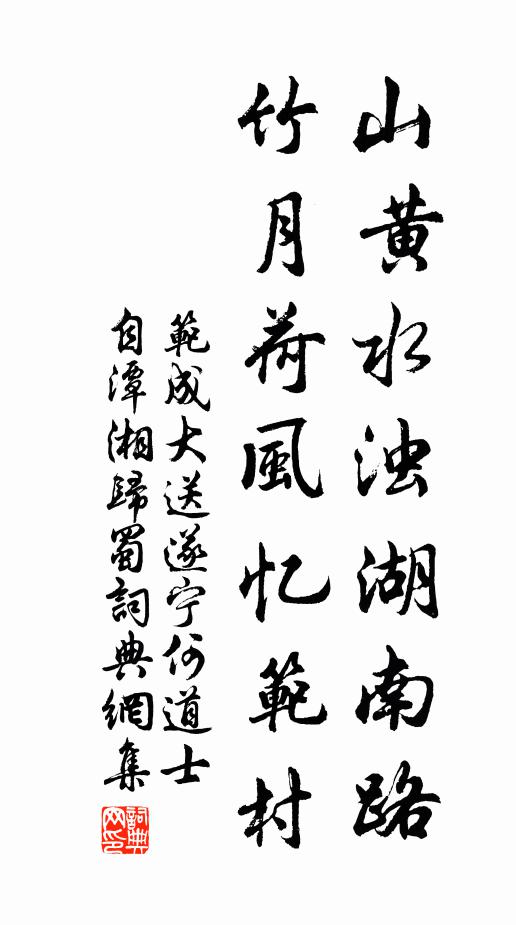 山黄水浊湖南路
竹月荷風忆範村
範成大送遂宁何道士
自潭湘歸蜀詞典網集
詞典网印